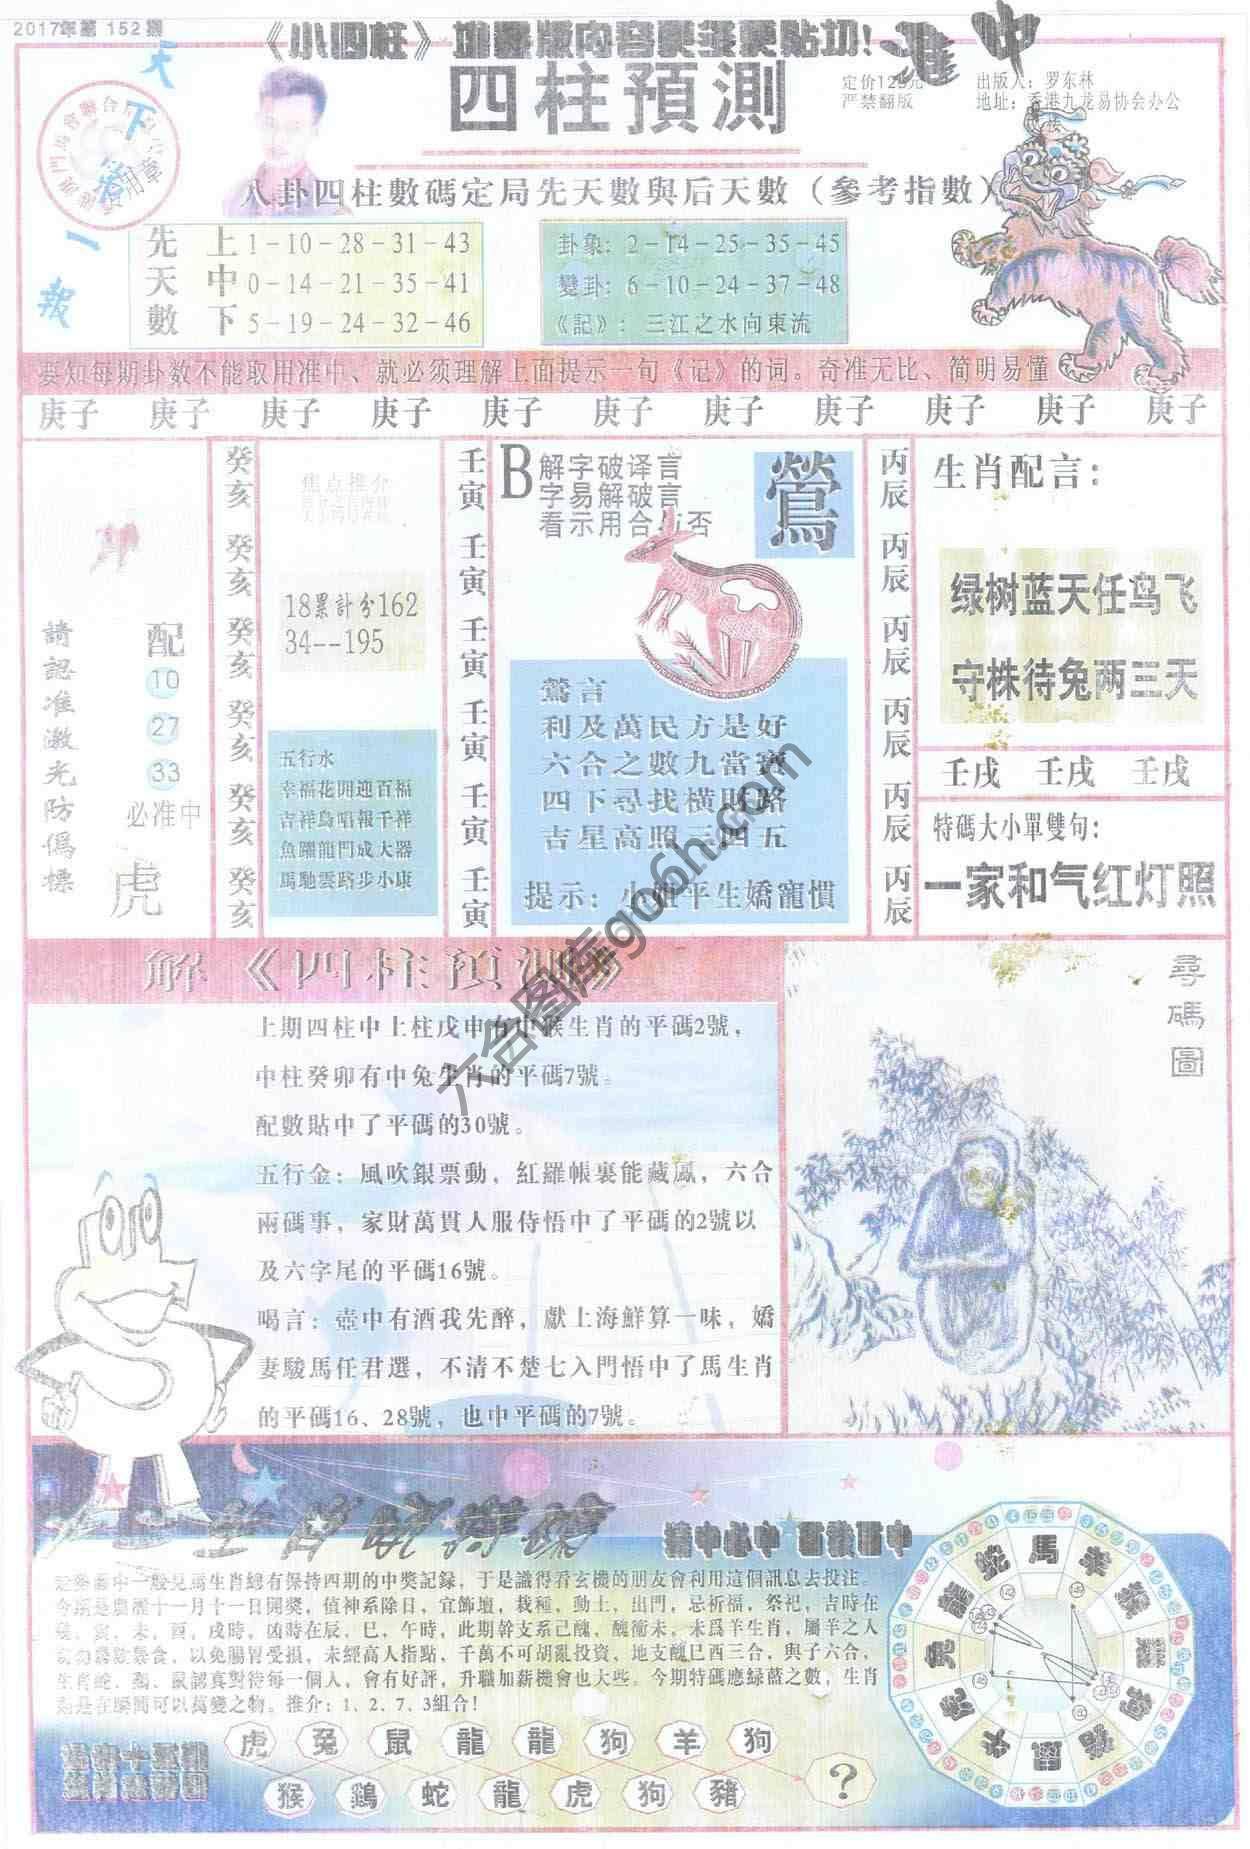 2017年第 152 期
《小四柱》
准 中
四柱預測
定价128元
严禁翻版
出版人：罗东林
地址：香港九龙易协会办公
天下第一報
八卦四柱數碼定局先天數與后天數（參考指數）
先天數
上 1-10-28-31-43
中 0-14-21-35-41
下 5-19-24-32-46
卦象：2-14-25-35-45
變卦：6-10-24-37-48
《記》：三江之水向東流
要知每期卦数不能取用准中、就必须理解上面提示一句《记》的词。奇准无比、简明易懂
庚子 庚子 庚子 庚子 庚子 庚子 庚子 庚子 庚子 庚子 庚子
請認准激光防僞標
配
10
27
33
必准中
虎
癸亥 癸亥 癸亥 癸亥 癸亥 癸亥
焦点推介
18累計分162
34--195
五行水
幸福花開迎百福
吉祥鳥唱報千祥
魚躍龍門成大器
馬馳雲路步小康
壬寅 壬寅 壬寅 壬寅 壬寅 壬寅
B
解字破译言
字易解破言
看示用合与否
鶯
鶯言
利及萬民方是好
六合之數九當寶
四下尋找橫財路
吉星高照三四五
提示：小姐平生嬌寵慣
丙辰 丙辰 丙辰 丙辰 丙辰 丙辰
生肖配言：
绿树蓝天任鸟飞
守株待兔两三天
壬戌 壬戌 壬戌
特碼大小單雙句：
一家和气红灯照
解《四柱預測》
上期四柱中上柱戊申有中猴生肖的平碼2號，
中柱癸卯有中兔生肖的平碼7號。
配數貼中了平碼的30號。
五行金：風吹銀票動，紅羅帳裏能藏鳳，六合
兩碼事，家財萬貫人服侍悟中了平碼的2號以
及六字尾的平碼16號。
喝言：壺中有酒我先醉，獻上海鮮算一味，嬌
妻駿馬任君選，不清不楚七入門悟中了馬生肖
的平碼16、28號，也中平碼的7號。
尋碼圖
六合图库go6h.com
一般見馬生肖總有保持四期的中獎記録，于是識得看玄機的朋友會利用這個訊息去投注。
今期是農曆十一月十一日開獎，值神系除日，宜飾壇，栽種，動土，出門，忌祈福，祭祀，吉時在
寅、未，酉，戌時，凶時在辰，巳，午時，此期幹支系己醜，醜衝未，未爲羊生肖，屬羊之人
以免腸胃受損，未經高人指點，千萬不可胡亂投資，地支醜巳酉三合，與子六合，
生肖蛇、鷄、鼠認真對待每一個人，會有好評，升職加薪機會也大些。今期特碼應緑藍之數，生肖
是在瞬間可以萬變之物。推介：1、2、7、3組合！
虎 兔 鼠 龍 龍 狗 羊 狗
猴 鷄 蛇 龍 虎 狗 豬
?